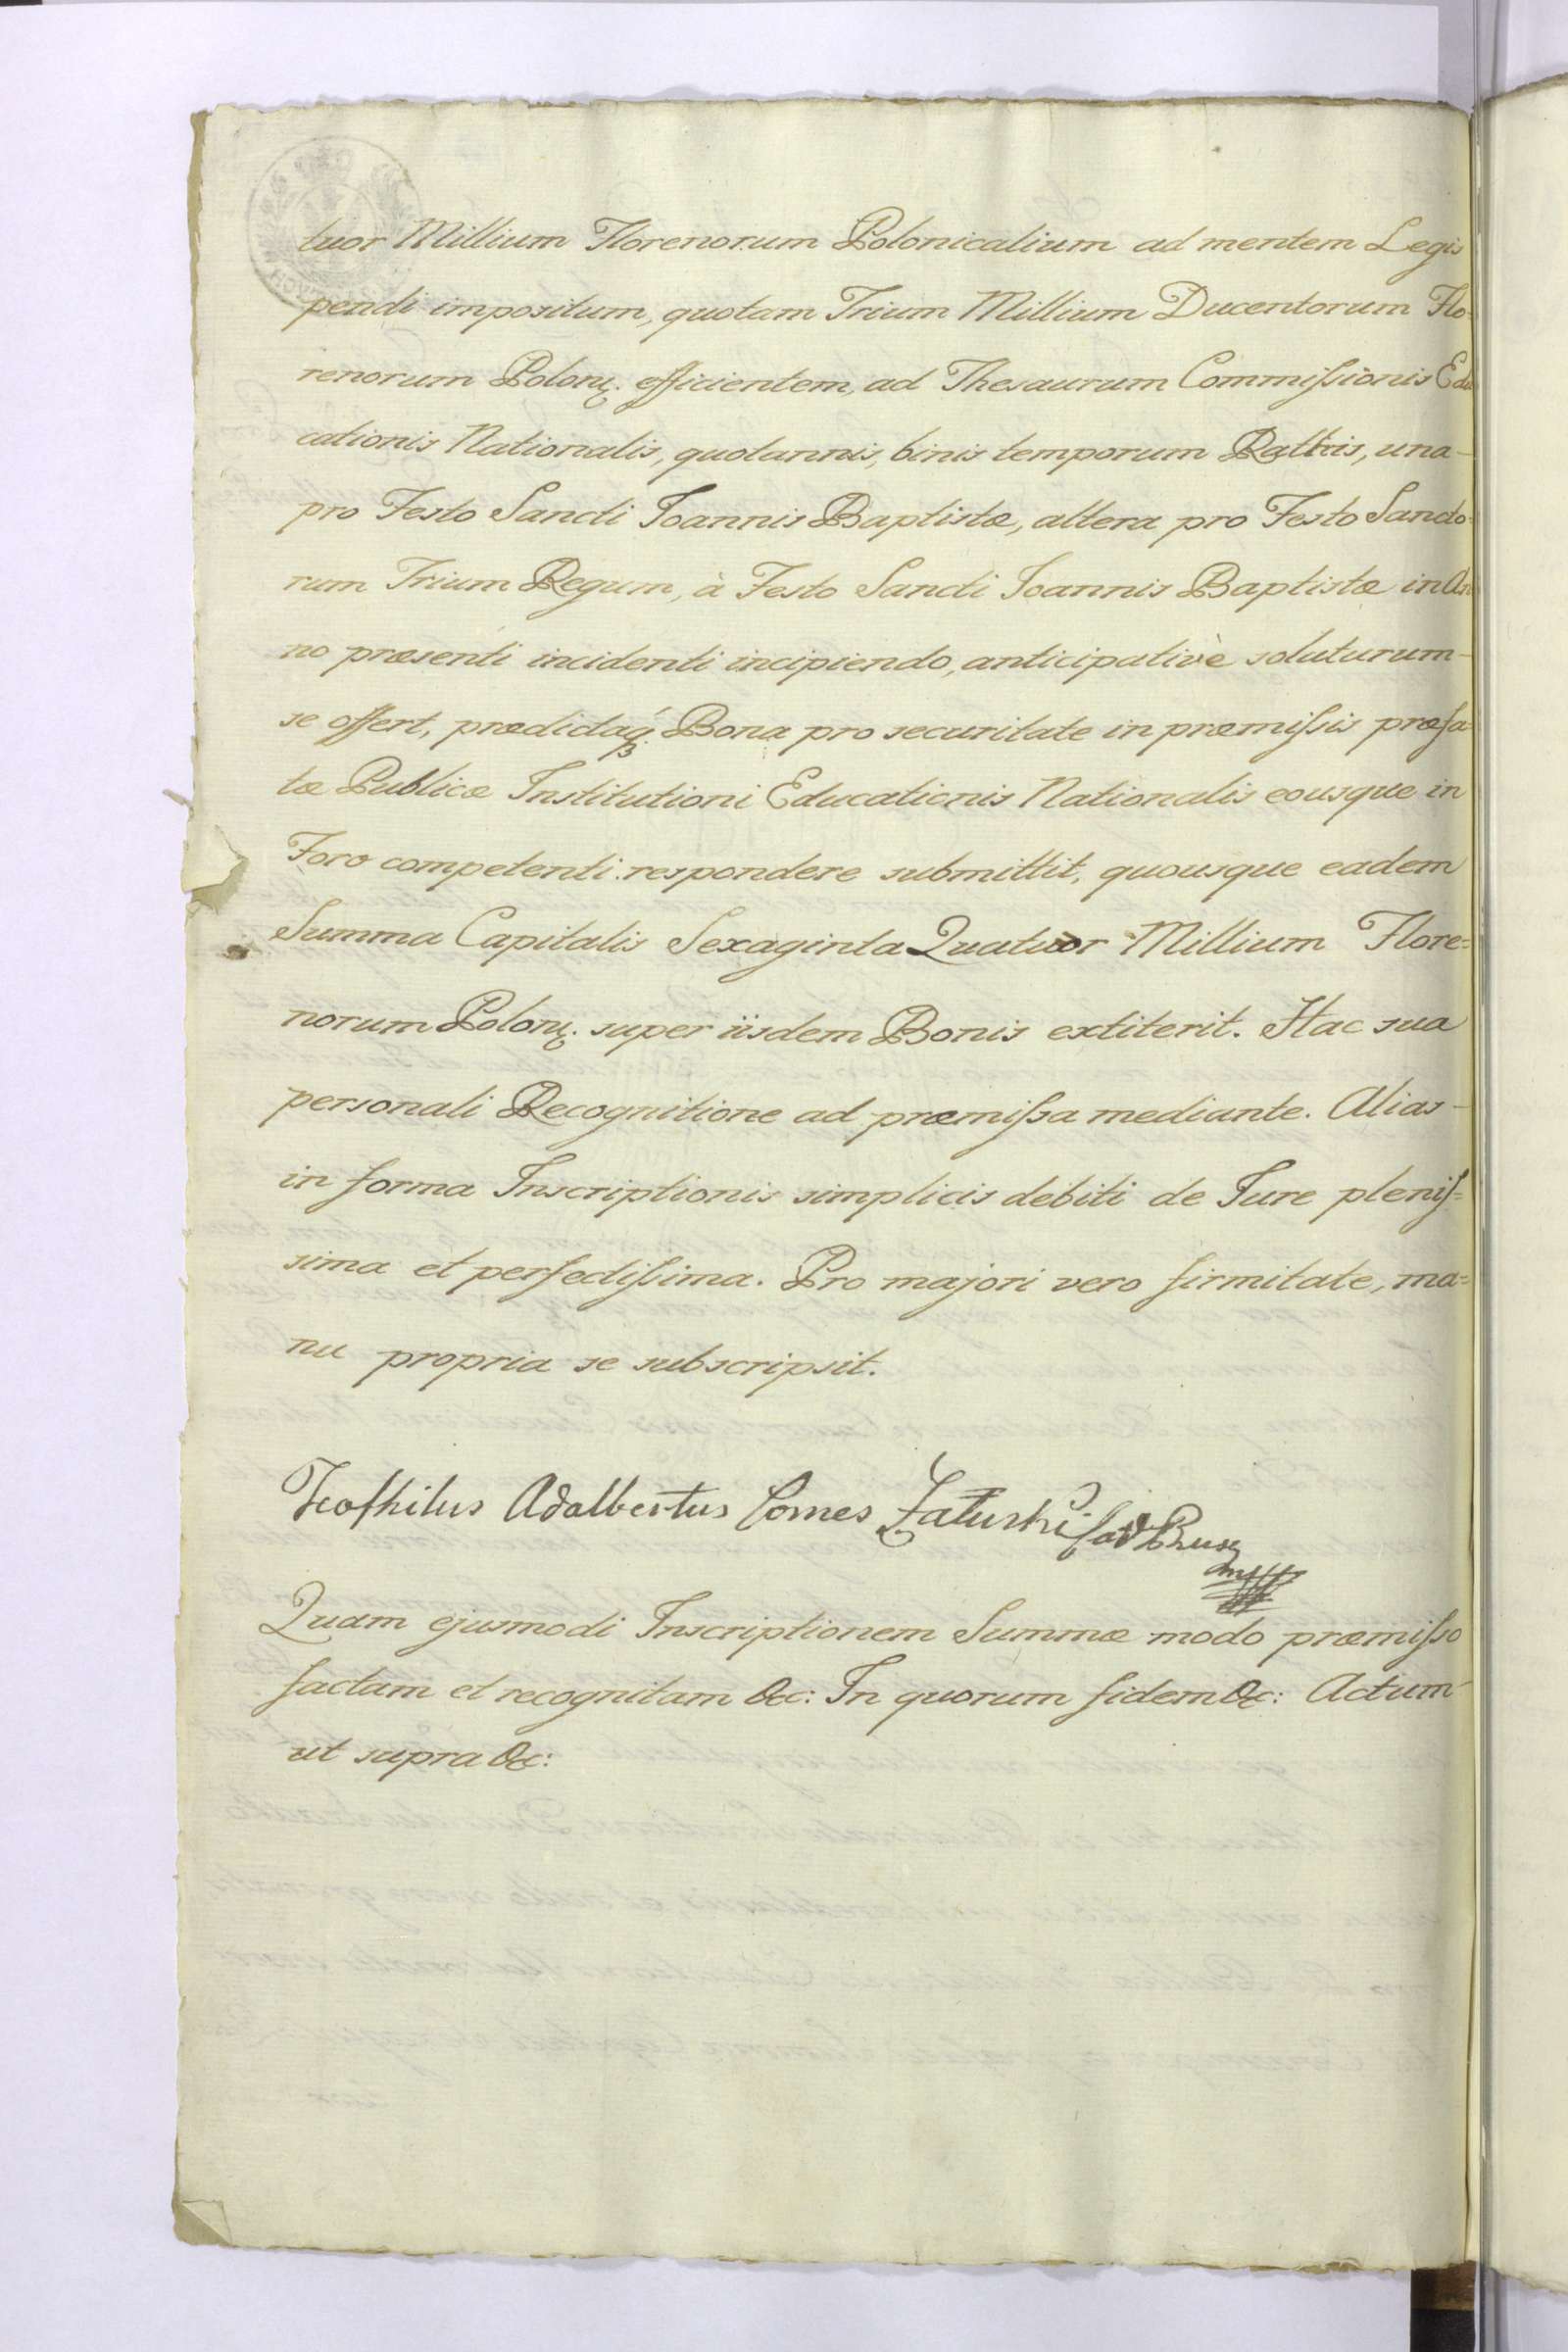 tuor Millium Florenorum Polonicalium ad mentem Legis
pendi impositum, quotam Trium Millium Ducentorum Flo-
renorum Polon. efficientem, ad Thesaurum Commiſsionis Edu
cationis Nationalis, quotannis, binis temporum Rattis, una-
pro Festo Sancti Joannis Baptistæ, altera pro Festo Sancto-
rum Trium Regum, à Festo Sancti Joannis Baptistæ in An
no præsenti incidenti incipiendo, anticipativè soluturum-
se offert, prædictaq́₃ Bona pro securitate in præmiſsis præfa-
tæ Publicæ Institutioni Educationis Nationalis eousque in
Foro competenti respondere submittit, quousque eadem
Summa Capitalis Sexaginta Quatuor Millium Flore=
norum Polon. super iisdem Bonis extiterit. Hac sua
personali Recognitione ad præmiſsa mediante. Alias-
in forma Inscriptionis simplicis debiti de Jure pleniſ=
sima et perfectiſsima. Pro majori vero firmitate, ma=
nu propria se subscripsit.
Teofhilus Adalbertus Comes Załuski
Quam ejusmodi Inscriptionem Summæ modo præmiſso
factam et recognitam &c: In quorum fidem &c: Actum-
ut supra &c: